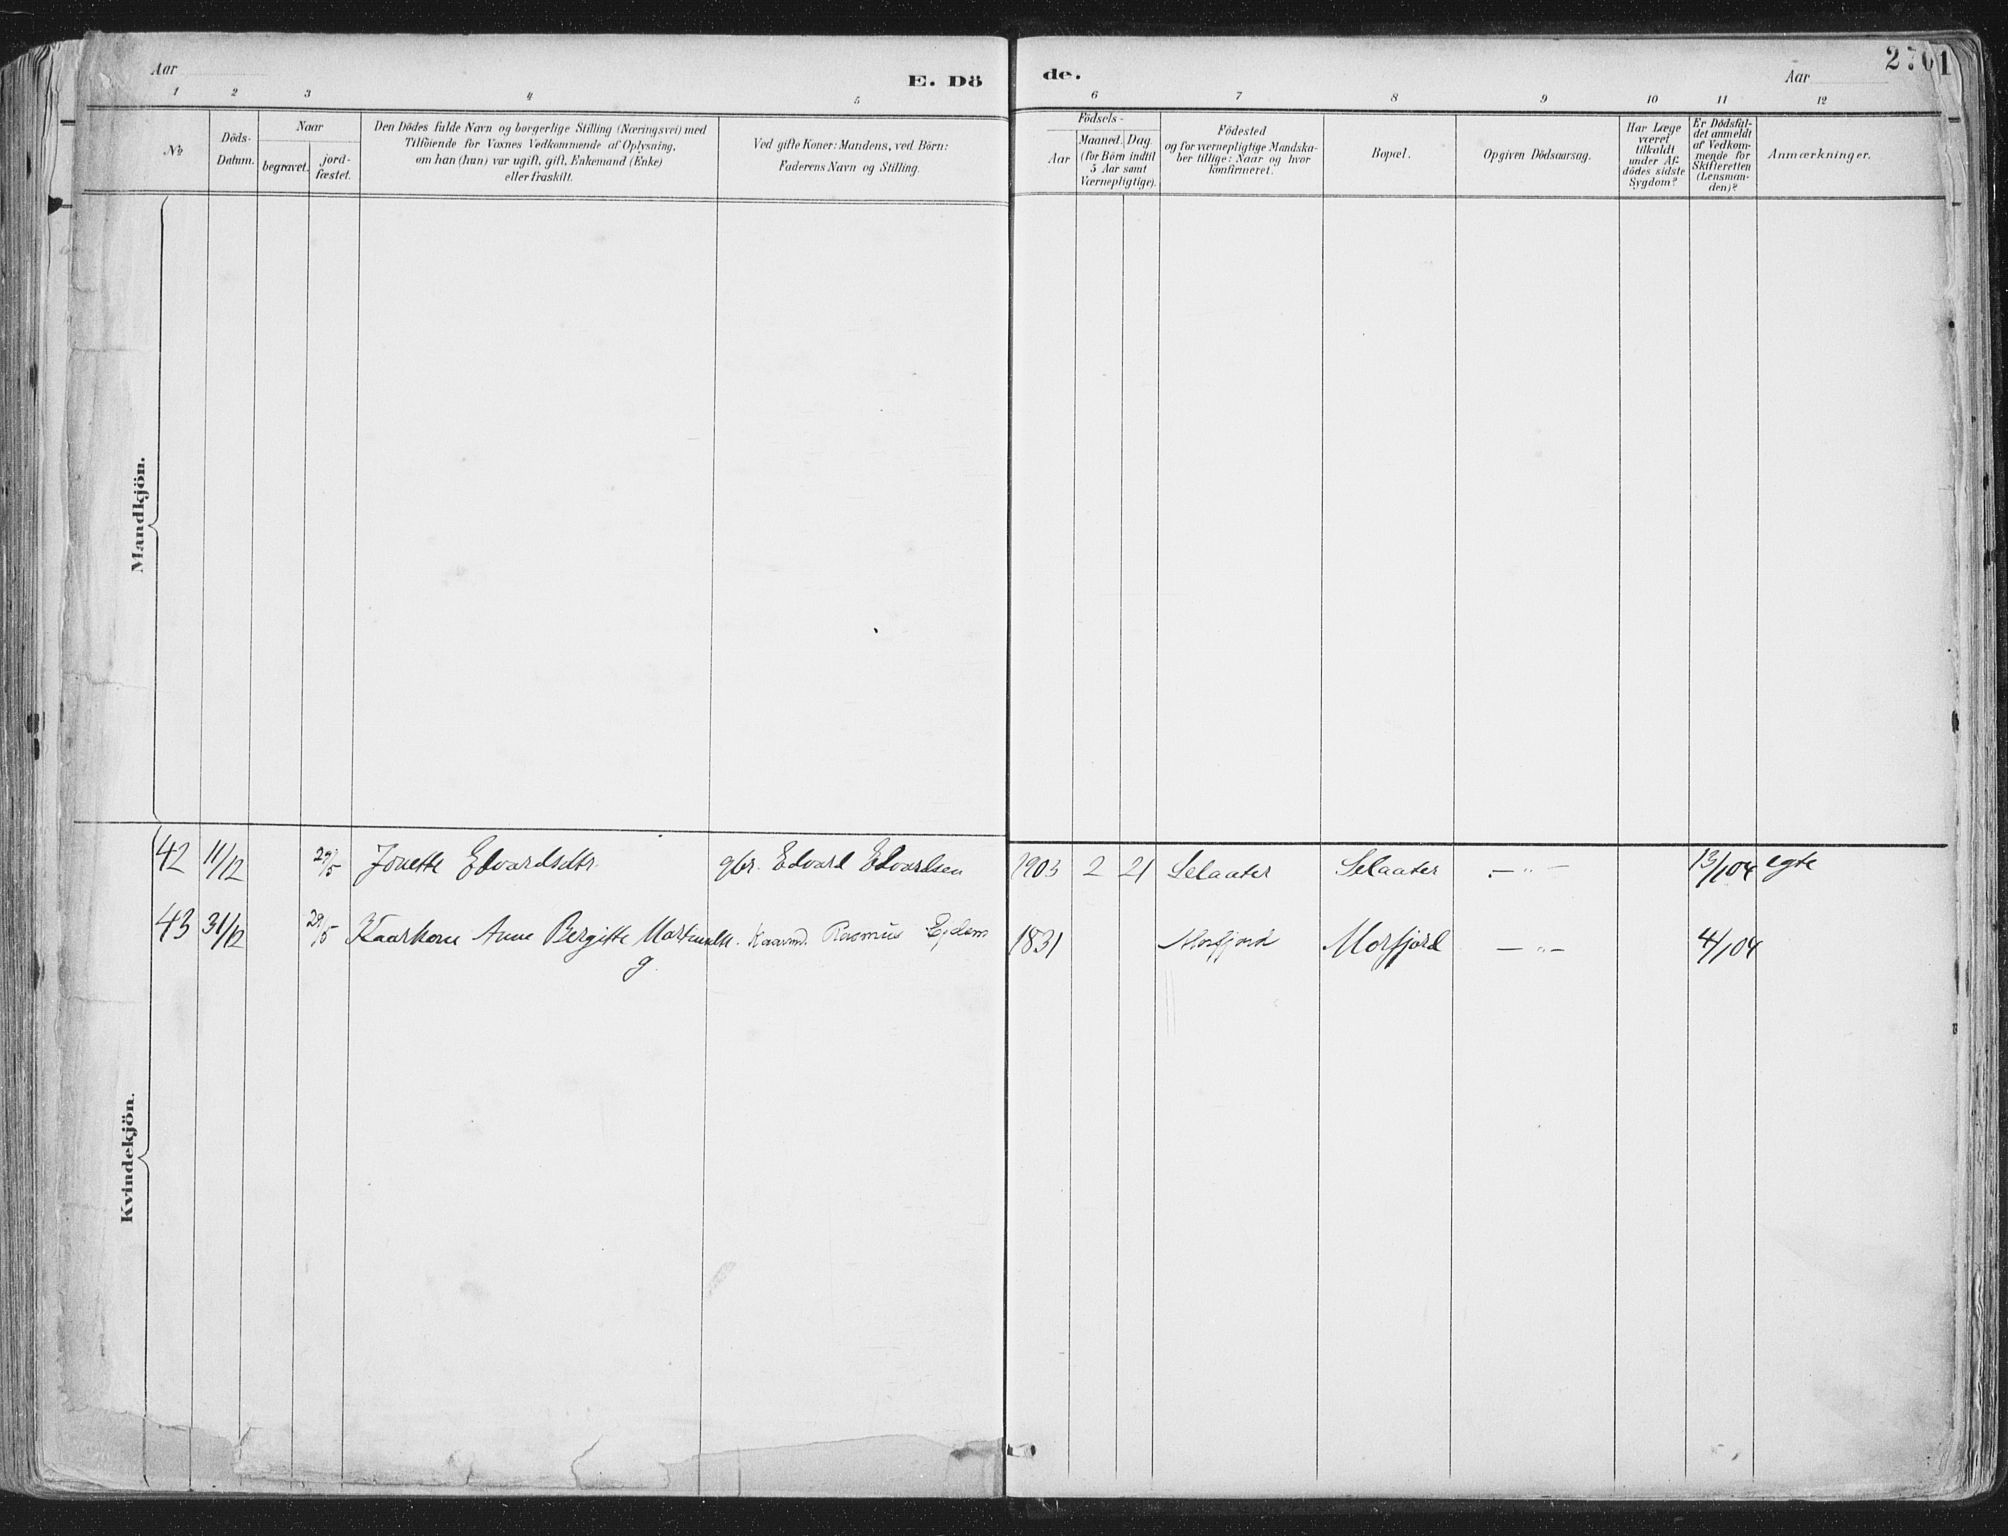 Aar
E. Dö
de.
Aar
2701
1 2 3 4 5 6 7 8 9 10 11 12
No
Döds-
Datum.
Naar
begravet.
jord-
fæstet.
Den Dödes fulde Navn og borgerlige Stilling (Næringsvei) med
Tilföiende for Voxnes Vedkommende af Oplysning,
om han (hun) var ugift, gift, Enkemand (Enke)
eller fraskilt.
Ved gifte Koner: Mandens, ved Börn:
Faderens Navn og Stilling.
Födsels-
Aar
Maaned.
Dag
(for Börn indtil
5 Aar samt
Værnepligtige).
Födested
og for værnepligtige Mandska-
ber tillige: Naar og hvor
konfirmeret.
Bopæl.
Opgiven Dödsaarsag.
Har Læge
været
tilkaldt
under Af-
dödes sidste
Sygdom?
Er Dödsfal-
det anmeldt
af Vedkom-
mende for
Skifteretten
(Lensman-
den)?
Anmærkninger.
Mandkjön.
Kvindekjön.
42 11/12 29/5 Jonette Edvardsdtr. gbr. Edvard Edvardsen 1903 2 21 Selaater Selaater — " — 13/1 04 egte
43 31/12 29/5 Kaarkone Anne Bergitte Kaarmd. Rasmus 1831 Morfjord Morfjord — " — 4/1 04
g.